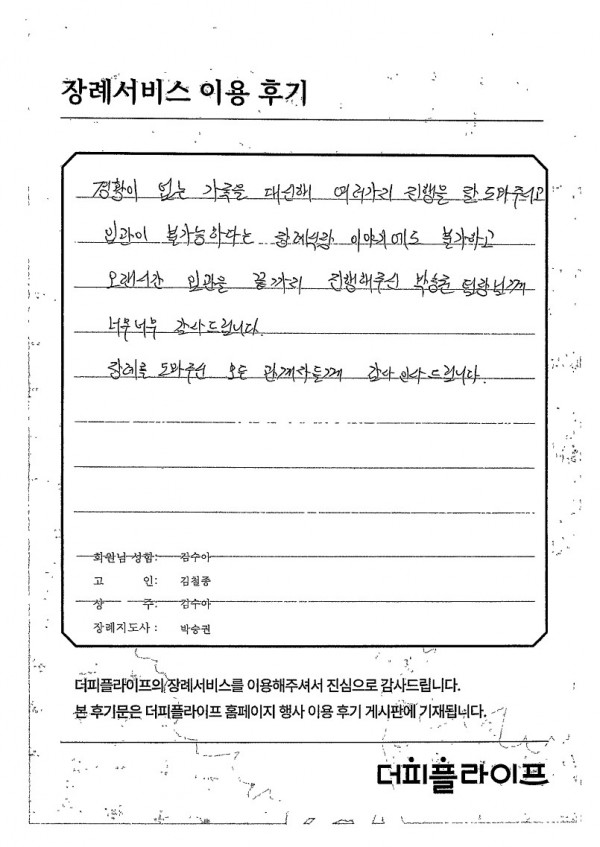 장례서비스 이용 후기
경황이 없는 가족을 대신해 여러가지 진행을 잘 도와주시고
입관이 불가능하다는 장례식장 이야기에도 불구하고
오랜시간 입관을 끝까지 진행해주신 박승권 팀장님께
너무너무 감사드립니다.
장례를 도와주신 모든 관계자분께 감사 인사 드립니다.
회원님 성함: 김수아
고 인: 김철종
상 주: 김수아
장례지도사: 박승권
더피플라이프의 장례서비스를 이용해주셔서 진심으로 감사드립니다.
본 후기문은 더피플라이프 홈페이지 행사 이용 후기 게시판에 기재됩니다.
더피플라이프